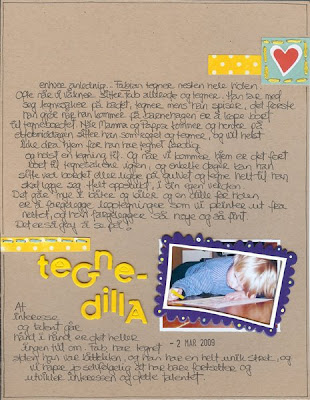 enhver anledning. Fabian tegner nesten hele tiden.
Ofte når vi våkner sitter Fab allerede og tegner. Han tar med
seg tegnesaker på badet, tegner mens han spiser, det første
han gjør når han kommer på barnehagen er å løpe bort
til tegnebordet. Når Mamma og Pappa kommer og henter på
ettermiddagen sitter han som regel og tegner, og vil helst
ikke dra hjem før han har tegnet ferdig
og høst en tegning til. Og når vi kommer hjem er det fort
bort til tegnesakene igjen, og enkelte dager kan han
sitte ved bordet eller ligge på gulvet og tegne helt til han
skal legge seg. Helt oppslukt, i din egen verden.
Det går mye i båter og biler og en dille for tiden
er å fargelegge tegninger som vi printer ut fra
nettet, og han fargelegger så nøye og så fint.
Det er så gøy å se på!
teGne-
dillA
At
interesse
og talent går
hånd i hånd er det heller
ingen tvil om. Fab har tegnet
siden han var lItten, og han har en helt unik strek, og
vi håper jo selvfølgelig at han bare fortsetter og
utvikler interessen og dette talentet.
- 2 MAR 2009